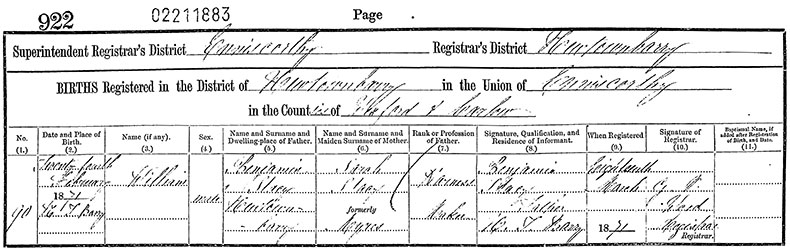 922 02211883 Page
Superintendent Registrar's District Enniscorthy Registrar's District Newtownbarry
BIRTHS Registered in the District of Newtownbarry in the Union of Enniscorthy
in the Counties of Wexford & Carlow
No. (1.) Date and Place of Birth. (2.) Name (if any). (3.) Sex. (4.) Name and Surname and Dwelling-place of Father. (5.) Name and Surname and Maiden Surname of Mother. (6.) Rank or Profession of Father. (7.) Signature, Qualification, and Residence of Informant. (8.) When Registered (9.) Signature of Registrar. (10.) Baptismal Name, if added after Registration of Birth, and Date. (11.)
Twenty fourth William Benjamin Sarah Benjamin Eighteenth
February Harness March
1871 male Father
90 N. T. Barry Newtown- formerly Maker
-barry Myres N. T. Barry 1871 Registrar.